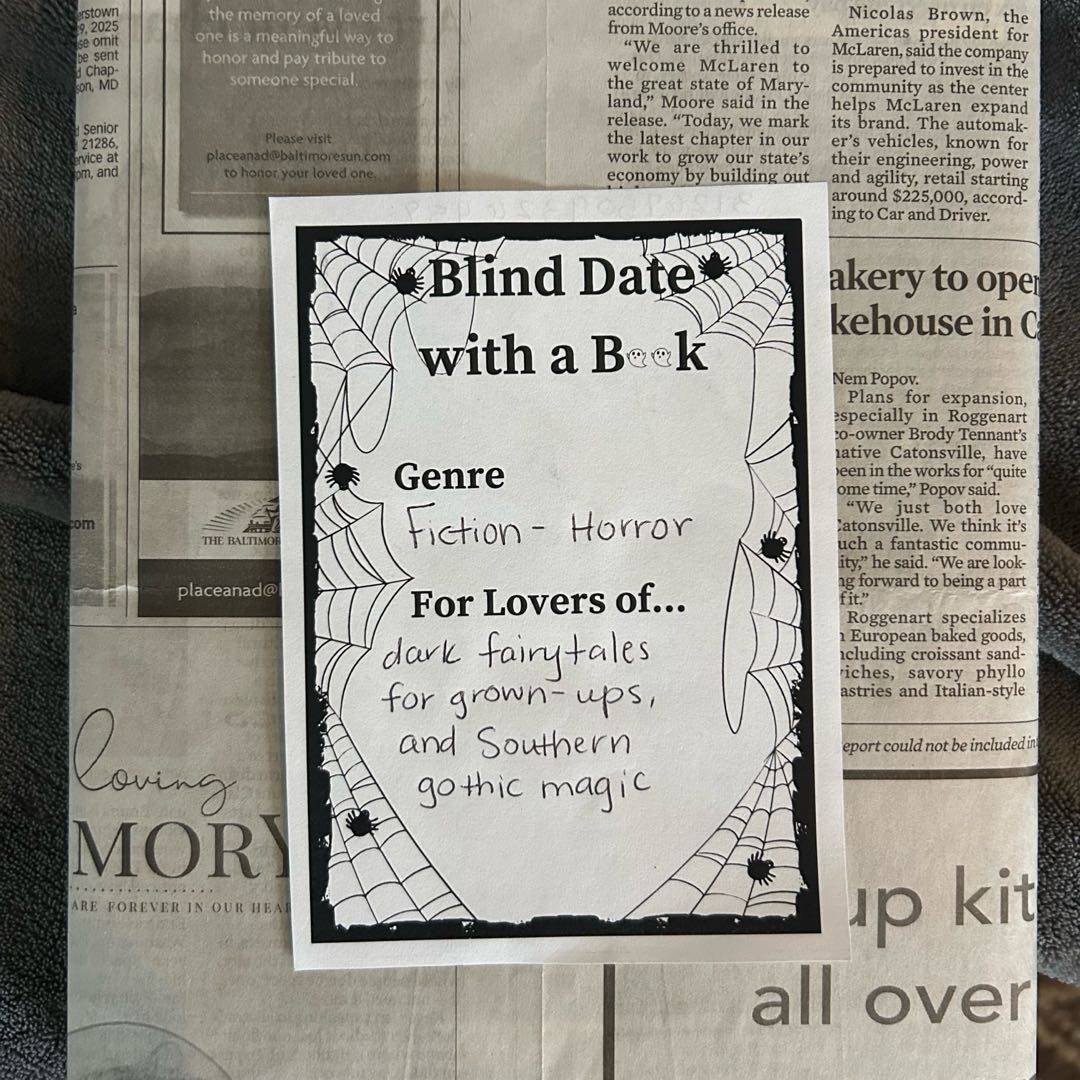 erstown
9, 2025
se omit
be sent
Chap-
son, MD
Senior
21286,
ervice at
pm, and
the memory of a loved
one is a meaningful way to
honor and pay tribute to
someone special.
Please visit
placeanad@baltimoresun.com
to honor your loved one.
according to a news release
from Moore's office.
“We are thrilled to
welcome McLaren to
the great state of Mary-
land,” Moore said in the
release. “Today, we mark
the latest chapter in our
work to grow our state's
economy by building out
Nicolas Brown, the
Americas president for
McLaren, said the company
is prepared to invest in the
community as the center
helps McLaren expand
its brand. The automak-
er's vehicles, known for
their engineering, power
and agility, retail starting
around $225,000, accord-
ing to Car and Driver.
Blind Date
with a Book
Genre
Fiction - Horror
For Lovers of...
dark fairytales
for grown-ups,
and Southern
gothic magic
akery to open
kehouse in C
Nem Popov.
Plans for expansion,
especially in Roggenart
co-owner Brody Tennant's
native Catonsville, have
been in the works for “quite
ome time,” Popov said.
“We just both love
Catonsville. We think it's
uch a fantastic commu-
ity,” he said. “We are look-
ng forward to being a part
f it.”
Roggenart specializes
n European baked goods,
ncluding croissant sand-
wiches, savory phyllo
astries and Italian-style
eport could not be included in
com
THE BALTIMOR
placeanad@
loving
MORY
ARE FOREVER IN OUR HEA
up kit
all over